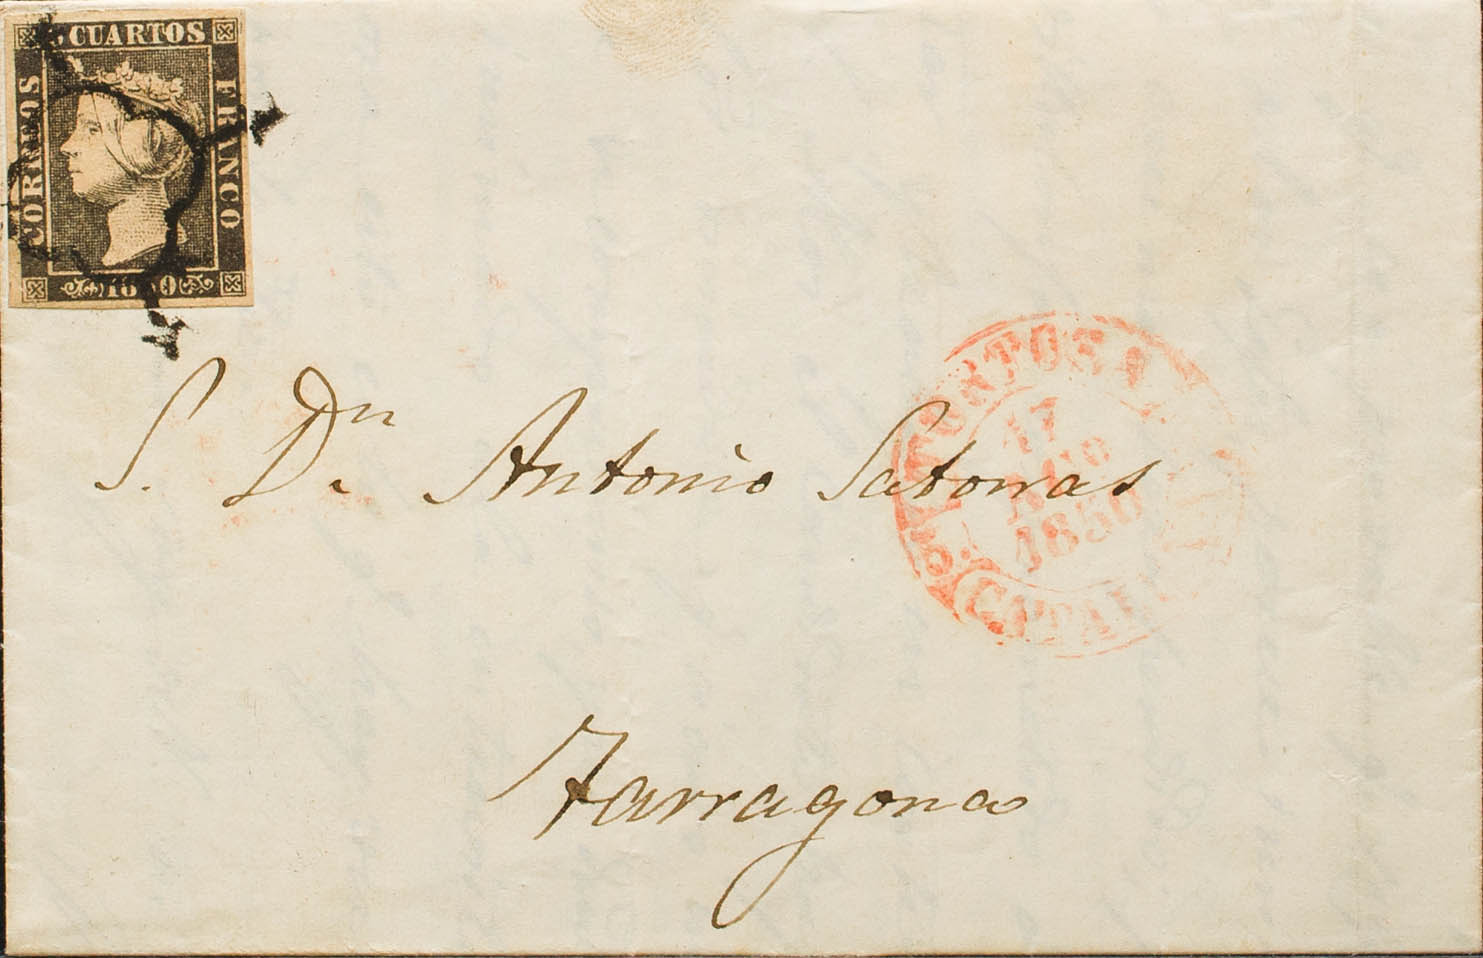 CUARTOS
CORREOS
FRANCO
1850
TORTOSA
17
AGO
1850
CATALUÑA
S. Dn Antonio Satorras
Tarragona